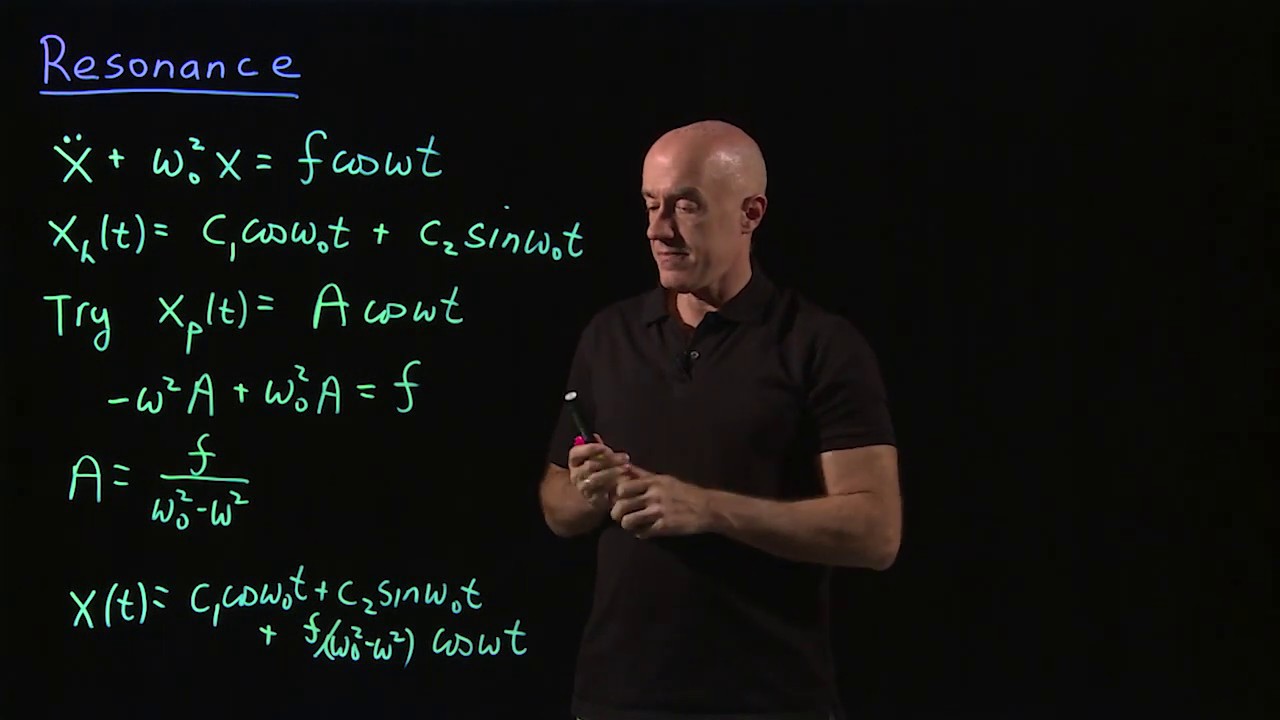 Resonance
ẍ + ω₀² x = f cosωt
xₕ(t) = c₁cosω₀t + c₂ sinω₀t
Try xₚ(t) = A cosωt
-ω²A + ω₀²A = f
A = f/(ω₀²-ω²)
x(t) = c₁cosω₀t + c₂sinω₀t
+ f/(ω₀²-ω²) cosωt